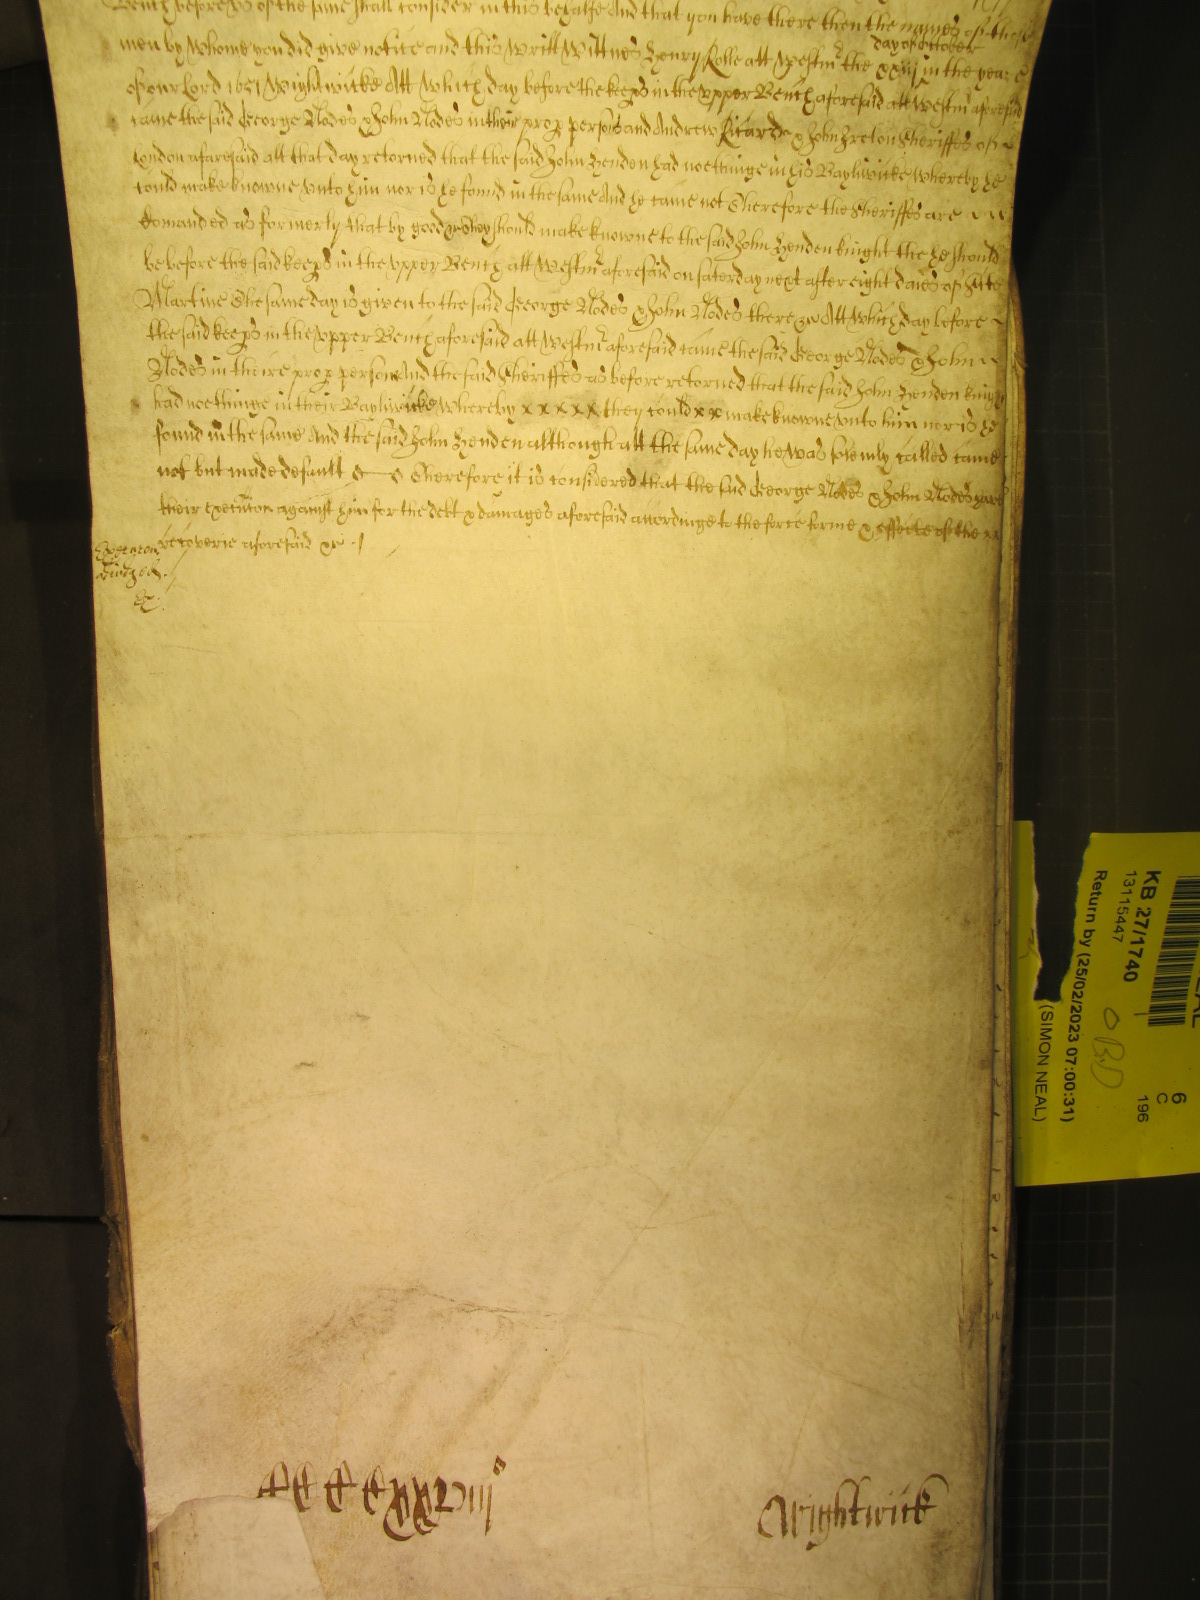 Bench before vs of the same shall consider in this behalfe And that you have there then the names of those
men by whome you did give notice and this writt Wittnes Henry Rolle att Westmr the xxiij day of October in the yeare
of our Lord 1651 Wightwicke Att which day before the keeps in the vpper Bench aforesaid att Westmr aforesaid
came the said George Nodes & John Nodes in their prop persons and Andrew Ricards & John Ireton Sheriffes of
London aforesaid att that day retorned that the said John Henden had noethinge in his Bayliwicke whereby he
could make knowne vnto him nor is he found in the same And he came not Therefore the Sheriffes are
Comanded as formerly that by good &c they should make knowne to the said John Henden knight the he should
be before the said keeps in the vpper Bench att Westmr aforesaid on saterday next after eight daies of Ste
Martine The same day is given to the said George Nodes & John Nodes there &c Att which day before
the said keeps in the vpper Bench aforesaid att Westmr aforesaid came the said George Nodes & John
Nodes in theire prop persons And the said Sheriffes as before retorned that the said John Henden knight
had noethinge in their Bayliwicke whereby x x x x x they could x x make knowne vnto him nor is he
found in the same And the said John Henden although att the same day he was solemly called came
not but made default Therefore it is considered that the said George Nodes & John Nodes have
their execution against him for the debt & damages aforesaid accordinge to the force forme & effecte of the
recoverie aforesaid &c
Execucon
Iudged
&c
CCCCxxviij
Wightwick
KB 27/1740
13115447
Return by (25/02/2023 07:00:31)
(SIMON NEAL)
6
C
196